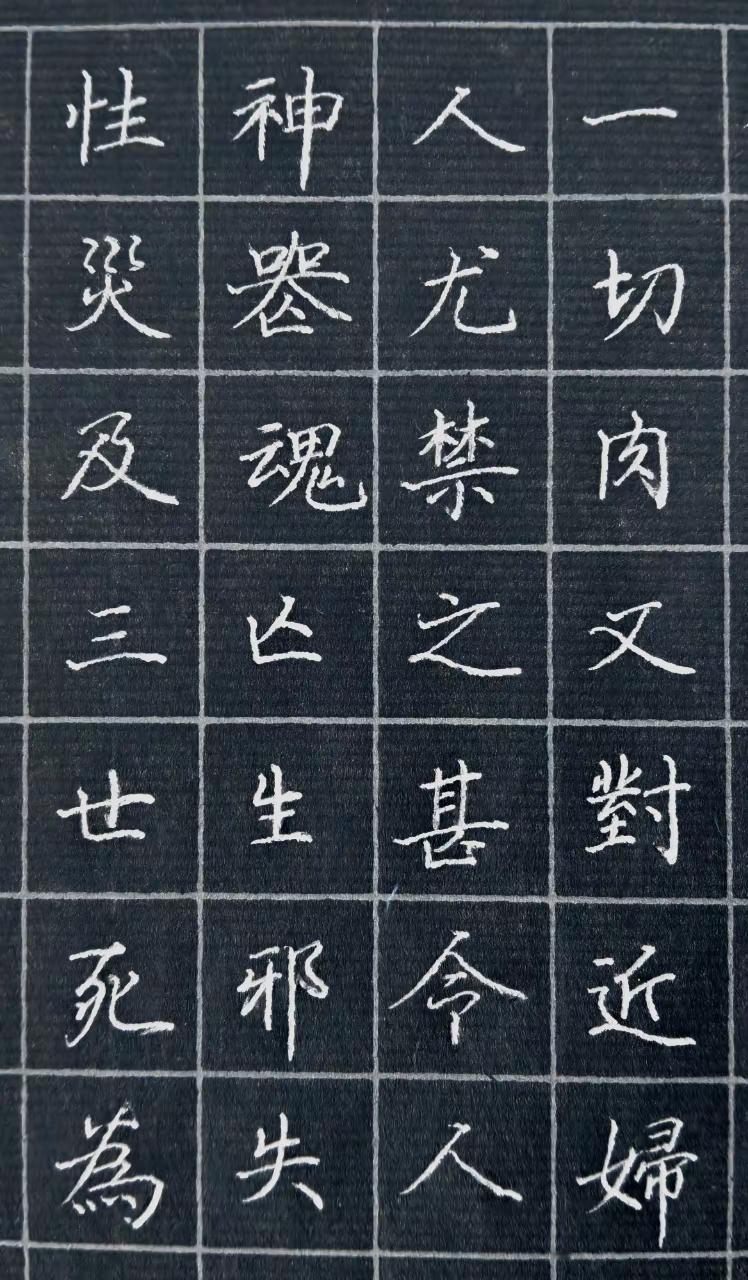 一切肉又對近婦
人尤禁之甚令人
神喪魂亾生邪失
性災及三世死為